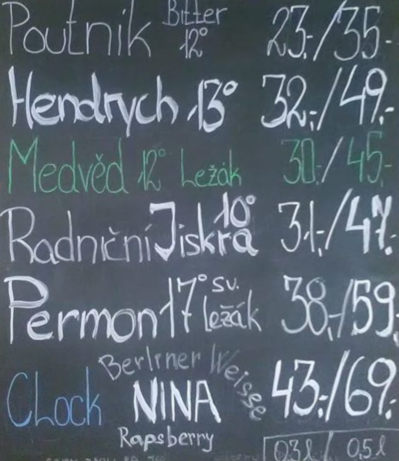 Poutník Bitter 12° 23,-/35,-
Hendrych 13° 32,-/49,-
Medvěd 12° Ležák 30,-/45,-
Radniční Jiskra 10° 31,-/47,-
Permon 17° sv. ležák 38,-/59,-
Berliner Weisse
CLock NINA 43,-/69,-
Rapsberry
0,3 l / 0,5 l